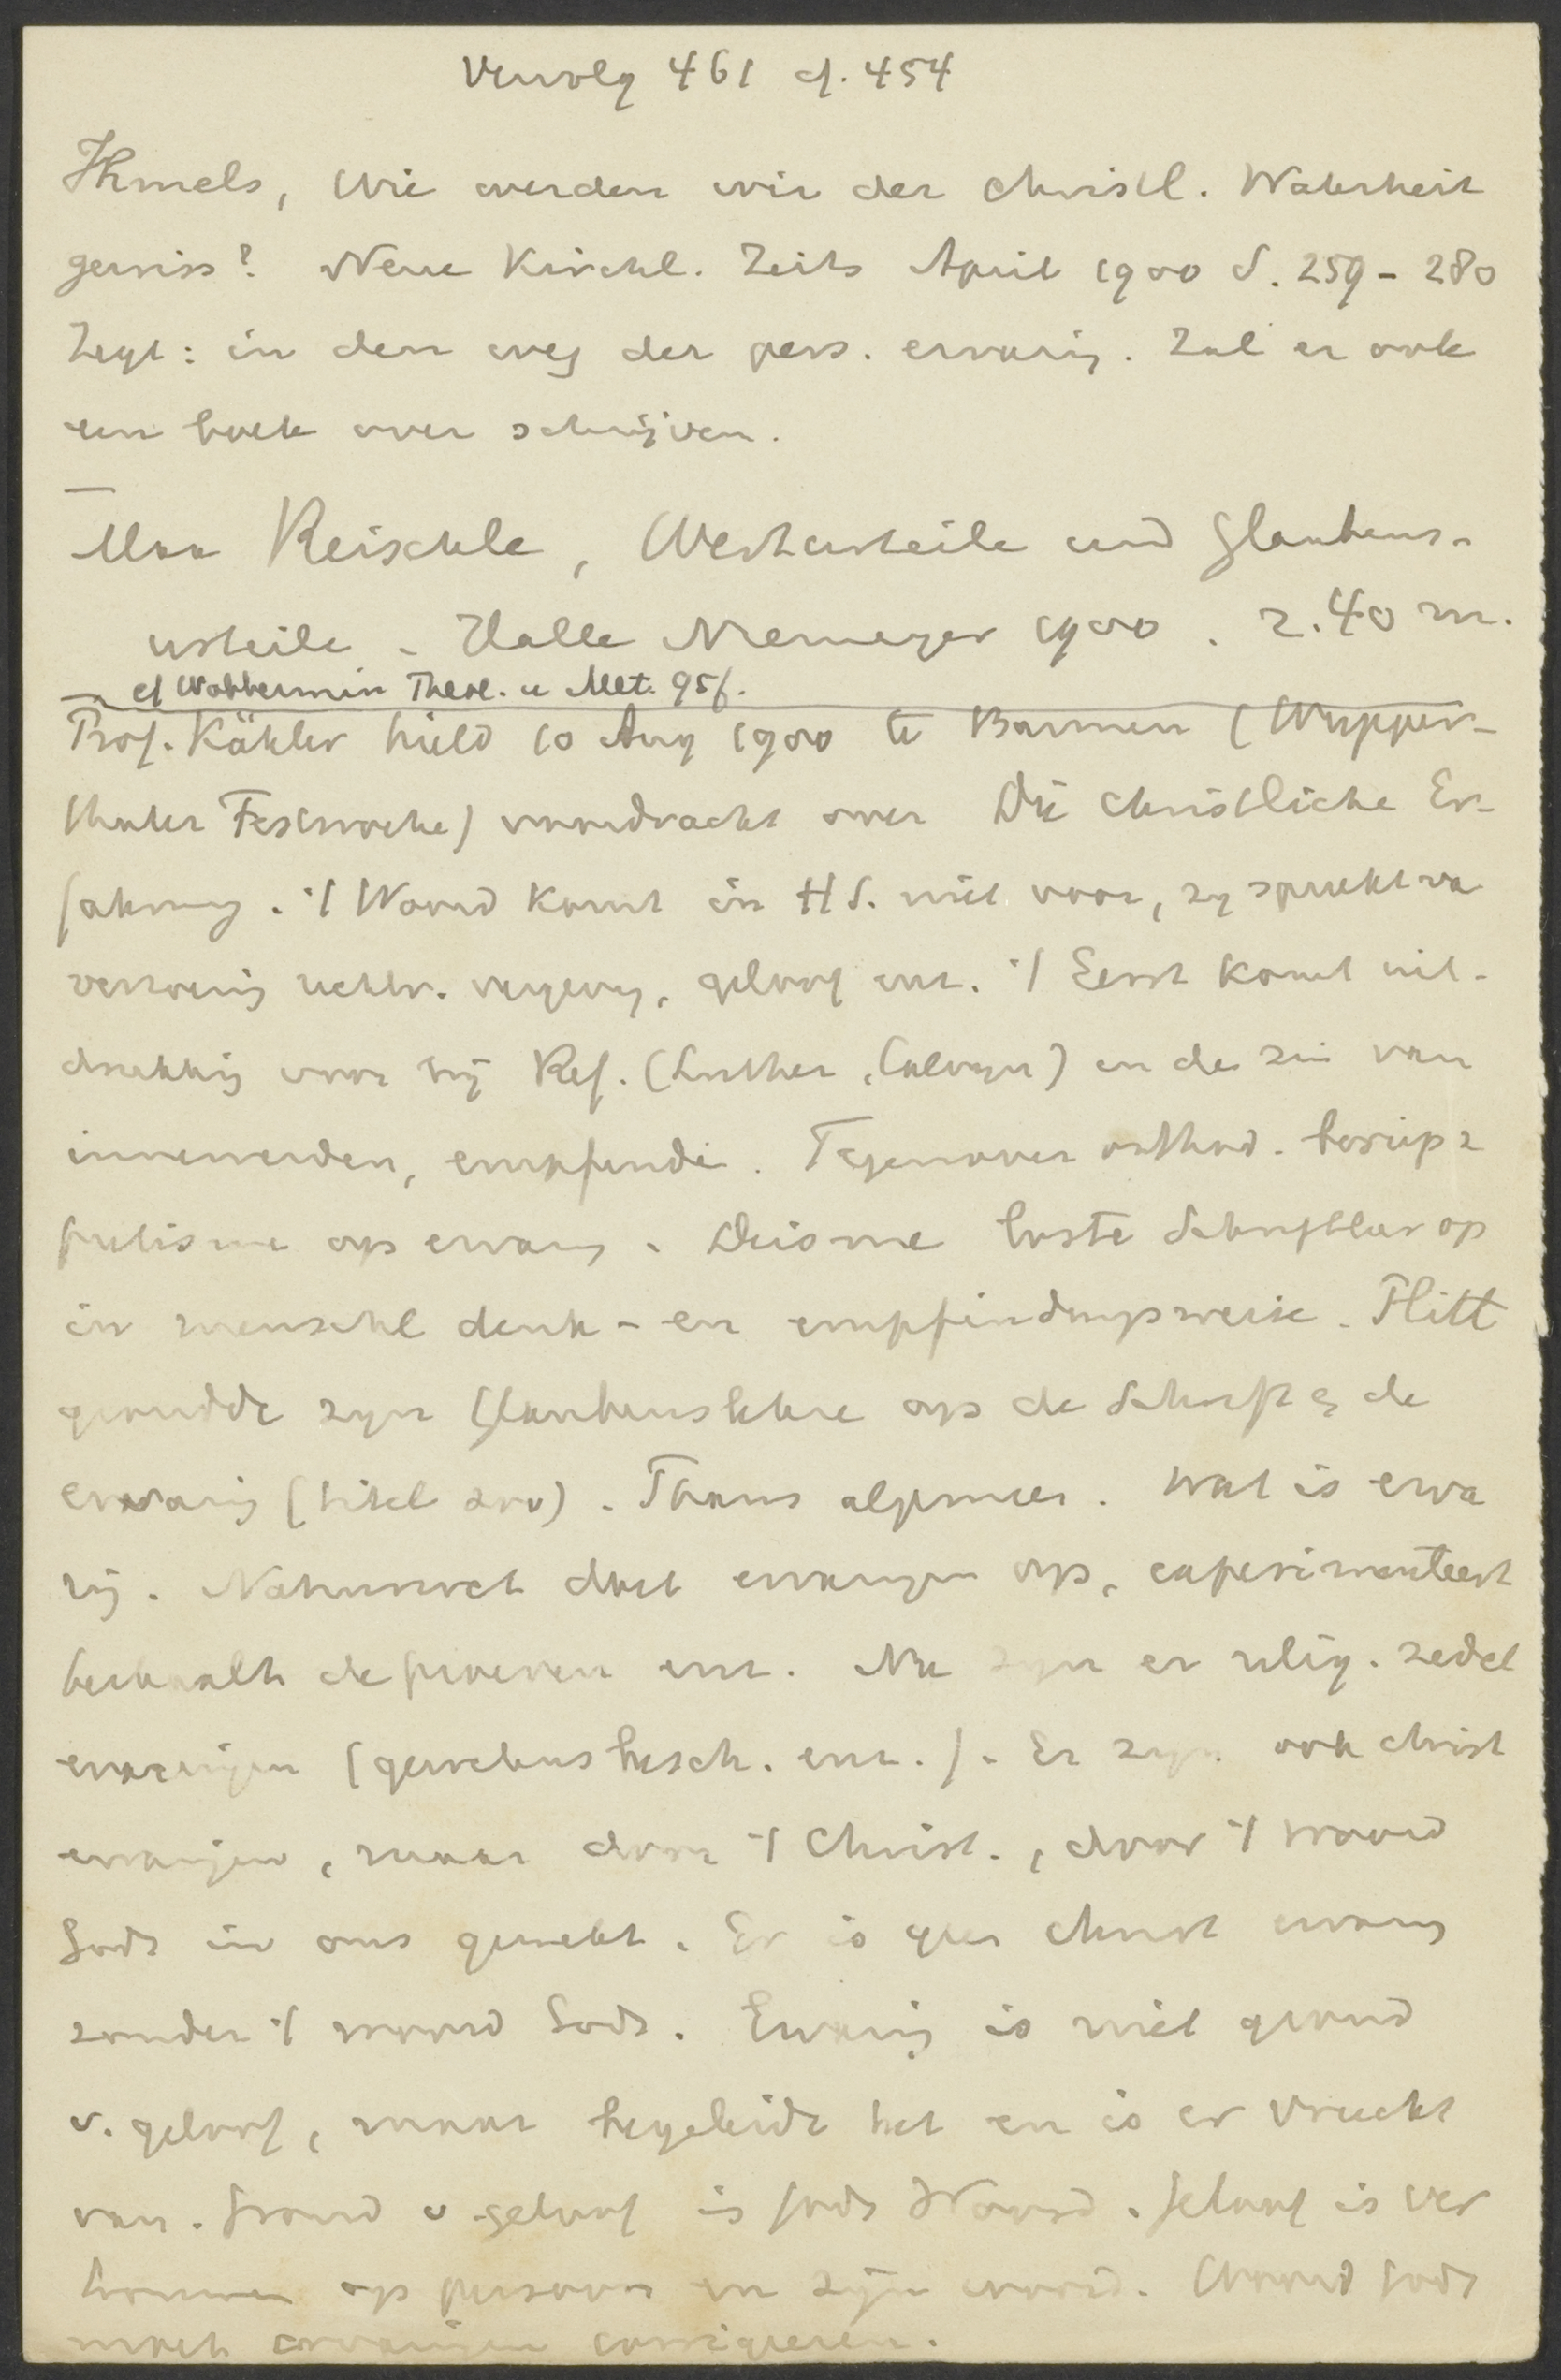 Vervolg 461 cf. 454
Ihmels, Wie werden wir der christl. Wahrheit
gewiss? Neue Kirchl. Zeits April 1900 S. 259-280
Zegt: in den weg der pers. ervaring. Zal er ook
een boek over schrijven.
Max Reischle, Werturteile und Glaubens-
urteile. Halle Niemeyer 1900. 2.40 m.
cf Wobbermin Theol. u Met. 95f.
Prof. Kähler hield 10 Aug 1900 te Barmen (Wupper-
thaler Festwoche) voordracht over Die christliche Er-
fahrung. 't Woord komt in H S. niet voor, zy spreekt va
verzoening rechtv. vergeving, geloof enz. 't Eerst komt uit-
drukking voor bij Ref. (Luther, Calvyn) in de zin van
innewerden, empfinden. Tegenover orthod. beriep z
piëtisme op ervaring. Deisme loste Schriftleer op
in menschl denk- en empfindungsweise. Plitt
grondde zyn Glaubenslehre op de Schrift & de
ervaring (titel zoo). Thans algemeen. Wat is erva
ring. Natuurwet doet ervaringen op, experimenteert
herhaalt de proeven enz. Nu zyn er relig. zedel
ervaringen (gewetensbesch. enz.). Er zyn ook christ
ervaringen, maar door 't Christ., door 't woord
Gods in ons gewekt. Er is geen christ ervaring
zonder 't woord Gods. Ervaring is niet grond
v. geloof, maar begeleidt het en is er vrucht
van. Grond v geloof is Gods Woord. Geloof is ver
trouwen op persoon en zijn woord. Woord Gods
moet ervaringen corrigeeren.